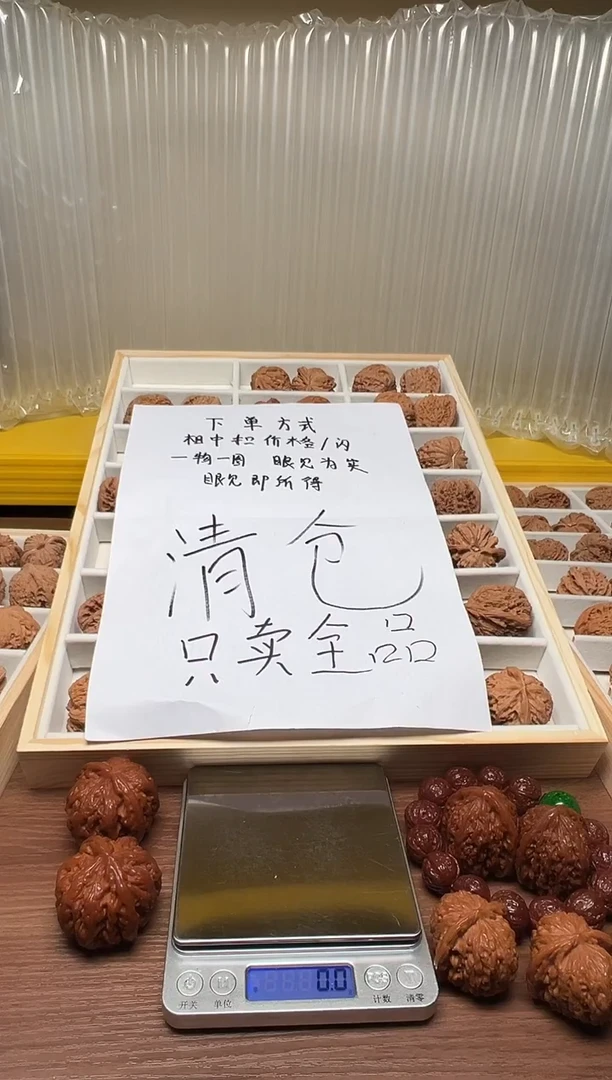 下单方式
相中扣价格/闪
一物一图 眼见为实
眼见即所得
清仓
只卖全品
0.0
开关 单位 计数 清零